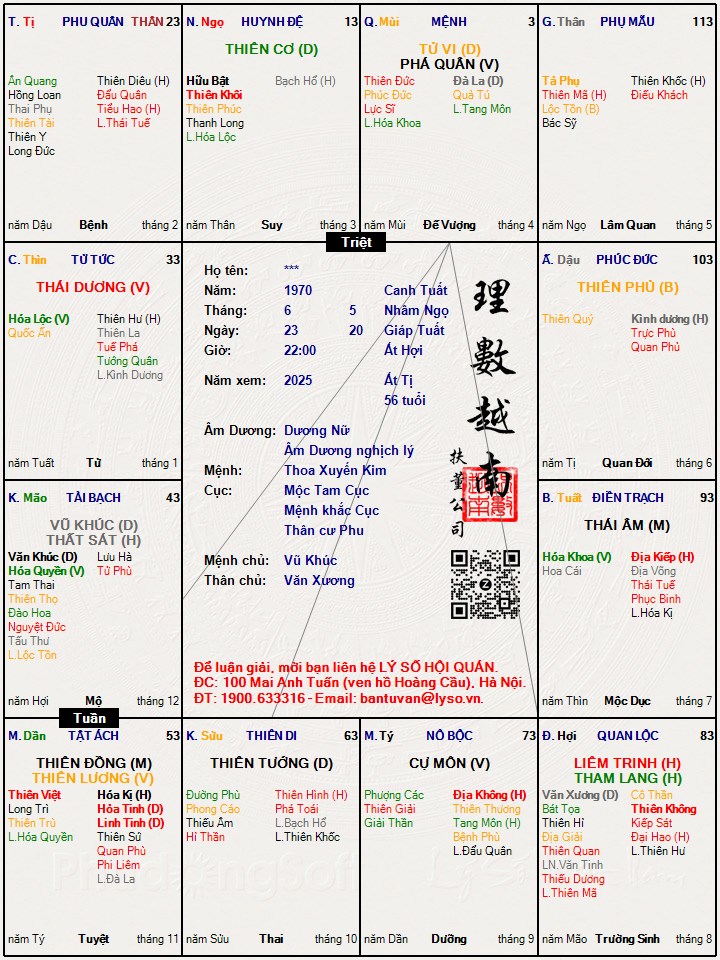 T. Tị PHU QUÂN THÂN 23
Ân Quang Thiên Diêu (H)
Hồng Loan Đẩu Quân
Thai Phụ Tiểu Hao (H)
Thiên Tài L.Thái Tuế
Thiên Y
Long Đức
năm Dậu Bệnh tháng 2
N. Ngọ HUYNH ĐỆ 13
THIÊN CƠ (D)
Hữu Bật Bạch Hổ (H)
Thiên Khôi
Thiên Phúc
Thanh Long
L.Hóa Lộc
năm Thân Suy tháng 3
Q. Mùi MỆNH 3
TỬ VI (D)
PHÁ QUÂN (V)
Thiên Đức Đà La (D)
Phúc Đức Quả Tú
Lực Sĩ L.Tang Môn
L.Hóa Khoa
năm Mùi Đế Vượng tháng 4
G. Thân PHỤ MẪU 113
Tả Phụ Thiên Khốc (H)
Thiên Mã (H) Điếu Khách
Lộc Tồn (B)
Bác Sỹ
năm Ngọ Lâm Quan tháng 5
Triệt
C. Thìn TỬ TỨC 33
THÁI DƯƠNG (V)
Hóa Lộc (V) Thiên Hư (H)
Quốc Ấn Thiên La
Tuế Phá
Tướng Quân
L.Kình Dương
năm Tuất Tử tháng 1
Họ tên: ***
Năm: 1970 Canh Tuất
Tháng: 6 5 Nhâm Ngọ
Ngày: 23 20 Giáp Tuất
Giờ: 22:00 Ất Hợi
Năm xem: 2025 Ất Tị
56 tuổi
Âm Dương: Dương Nữ
Âm Dương nghịch lý
Mệnh: Thoa Xuyến Kim
Cục: Mộc Tam Cục
Mệnh khắc Cục
Thân cư Phu
Mệnh chủ: Vũ Khúc
Thân chủ: Văn Xương
理數越南
扶董公司
Để luận giải, mời bạn liên hệ LÝ SỐ HỘI QUÁN.
ĐC: 100 Mai Anh Tuấn (ven hồ Hoàng Cầu), Hà Nội.
ĐT: 1900.633316 - Email: bantuvan@lyso.vn.
Ấ. Dậu PHÚC ĐỨC 103
THIÊN PHỦ (B)
Thiên Quý Kình dương (H)
Trực Phù
Quan Phủ
năm Tị Quan Đới tháng 6
K. Mão TÀI BẠCH 43
VŨ KHÚC (D)
THẤT SÁT (H)
Văn Khúc (D) Lưu Hà
Hóa Quyền (V) Tử Phù
Tam Thai
Thiên Thọ
Đào Hoa
Nguyệt Đức
Tấu Thư
L.Lộc Tồn
năm Hợi Mộ tháng 12
B. Tuất ĐIỀN TRẠCH 93
THÁI ÂM (M)
Hóa Khoa (V) Địa Kiếp (H)
Hoa Cái Địa Võng
Thái Tuế
Phục Binh
L.Hóa Kị
năm Thìn Mộc Dục tháng 7
Tuần
M. Dần TẬT ÁCH 53
THIÊN ĐỒNG (M)
THIÊN LƯƠNG (V)
Thiên Việt Hóa Kị (H)
Long Trì Hỏa Tinh (D)
Thiên Trù Linh Tinh (D)
L.Hóa Quyền Thiên Sứ
Quan Phù
Phi Liêm
L.Đà La
năm Tý Tuyệt tháng 11
K. Sửu THIÊN DI 63
THIÊN TƯỚNG (D)
Đường Phù Thiên Hình (H)
Phong Cáo Phá Toái
Thiếu Âm L.Bạch Hổ
Hỉ Thần L.Thiên Khốc
năm Sửu Thai tháng 10
M. Tý NÔ BỘC 73
CỰ MÔN (V)
Phượng Các Địa Không (H)
Thiên Giải Thiên Thương
Giải Thần Tang Môn (H)
Bệnh Phù
L.Đẩu Quân
năm Dần Dưỡng tháng 9
Đ. Hợi QUAN LỘC 83
LIÊM TRINH (H)
THAM LANG (H)
Văn Xương (D) Cô Thần
Bát Tọa Thiên Không
Thiên Hỉ Kiếp Sát
Địa Giải Đại Hao (H)
Thiên Quan L.Thiên Hư
LN.Văn Tinh
Thiếu Dương
L.Thiên Mã
năm Mão Trường Sinh tháng 8